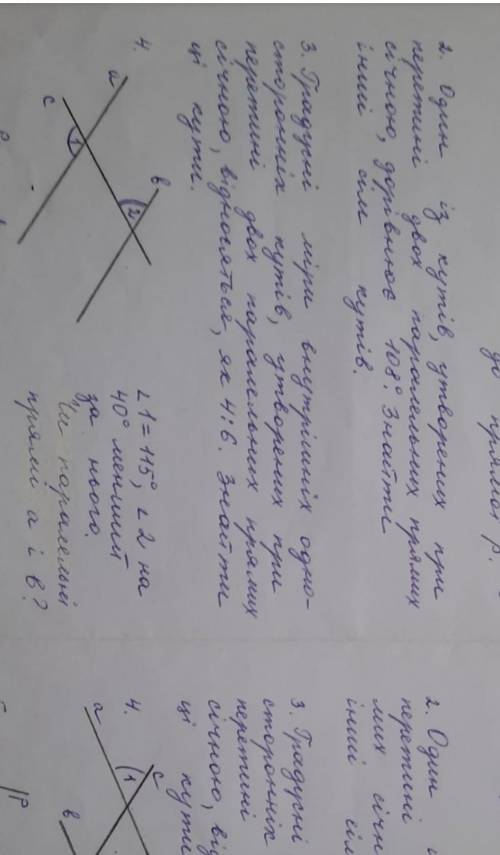 до прямої р.
2. Один із кутів, утворених при
перетині двох паралельних прямих
січною, дорівнює 108°. Знайти
інші сім кутів.
3. Градусні міри внутрішніх одно-
сторонніх кутів, утворених при
перетині двох паралельних прямих
січною, відносяться, як 4:6. Знайти
ці кути.
4.
a
c
1
2
в
∠1=115°, ∠2 на
40° менший
за нього.
Чи паралельні
прямі а і в?
2. Один
перетині
мих січн
інші сім
3. Градусні
сторонніх
перетині
січною, від
ці кути
4.
a
1
c
в
р